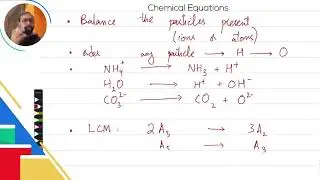 Chemical Equations
• Balance the particles present
(ions or atoms)
• any particle → H → O
• NH₄⁺ → NH₃ + H⁺
H₂O → H⁺ + OH⁻
CO₃²⁻ → CO₂ + O²⁻
• LCM : 2A₃ → 3A₂
A₅ → A₃